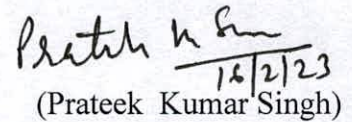 Prateek K Sin
16/2/23
(Prateek Kumar Singh)